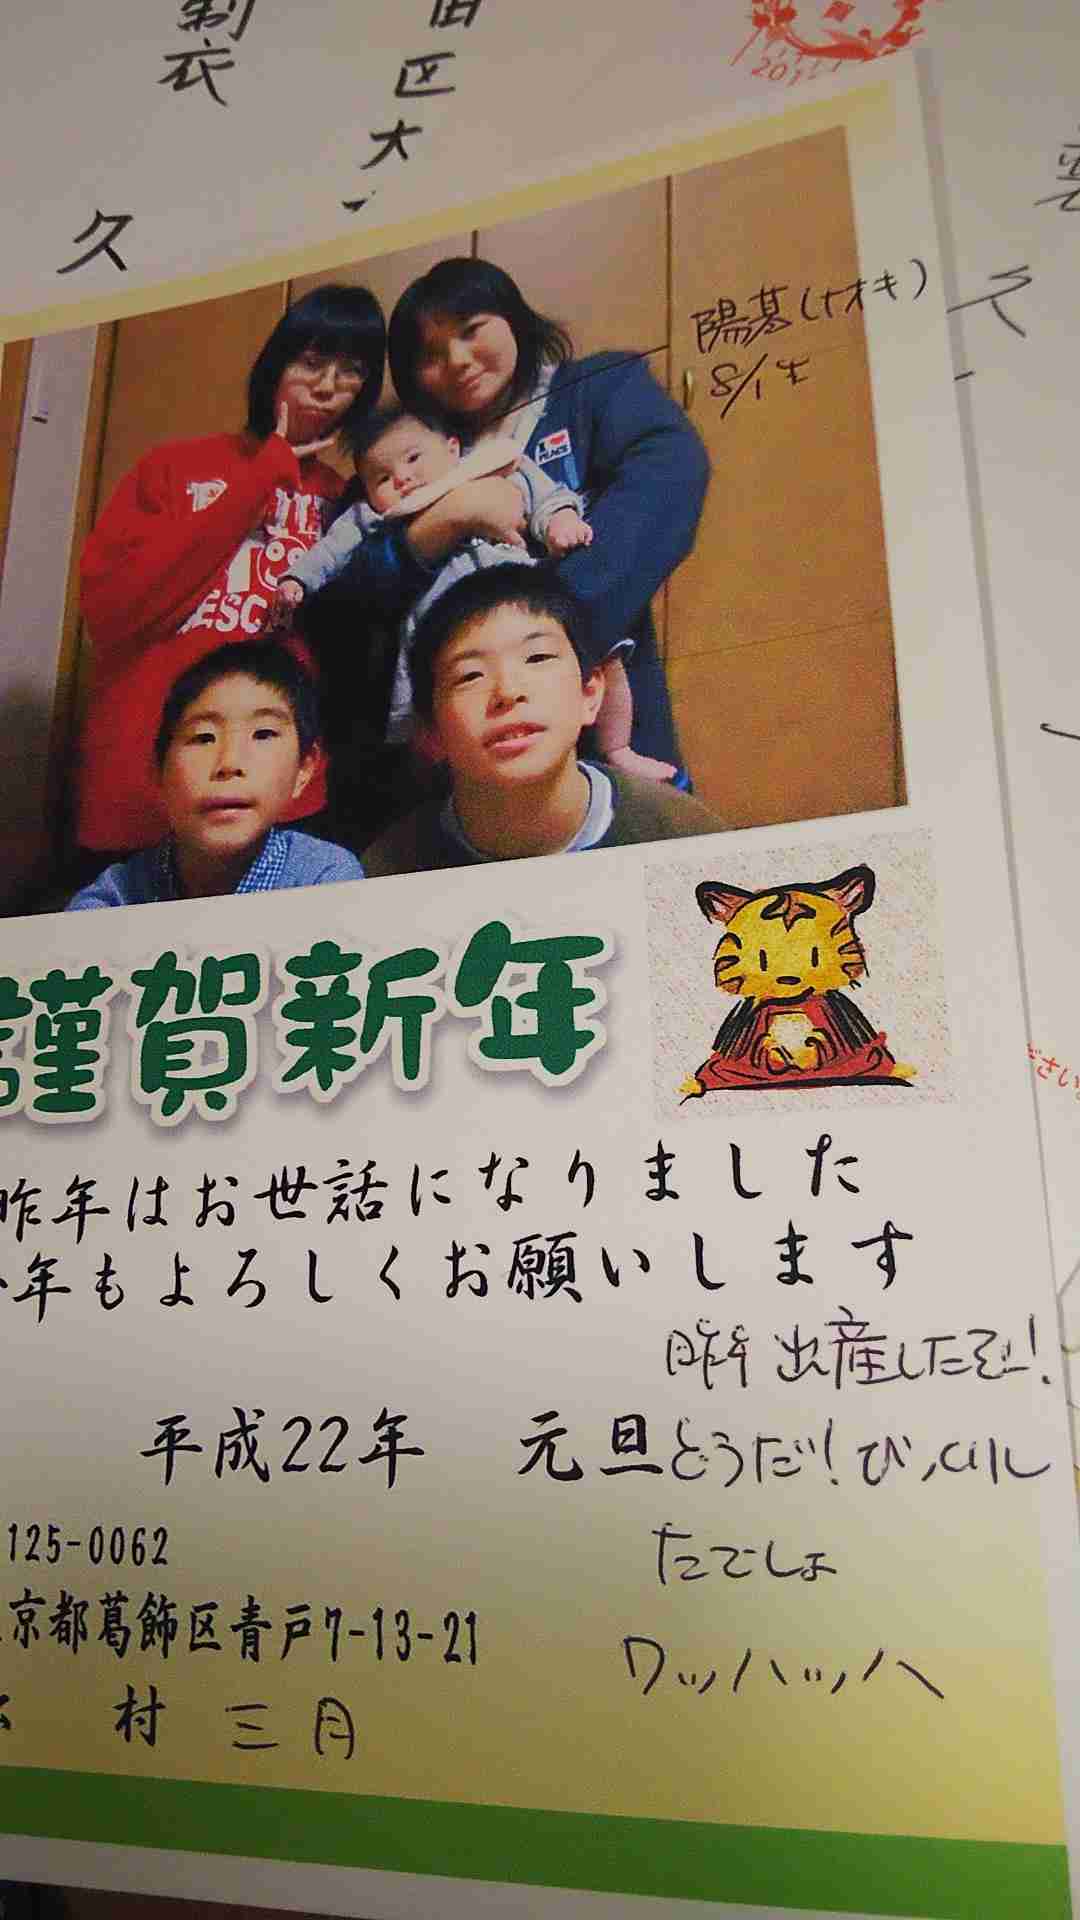 制衣
区大
久
陽葛(ナオキ)
8/1生
I ♥ PEACE
謹賀新年
昨年はお世話になりました
年もよろしくお願いします
昨年出産したぞー!
平成22年 元旦
どうだ!びっくりし
たでしょ
ワッハッハ
125-0062
京都葛飾区青戸7-13-21
村 三月
ださい。